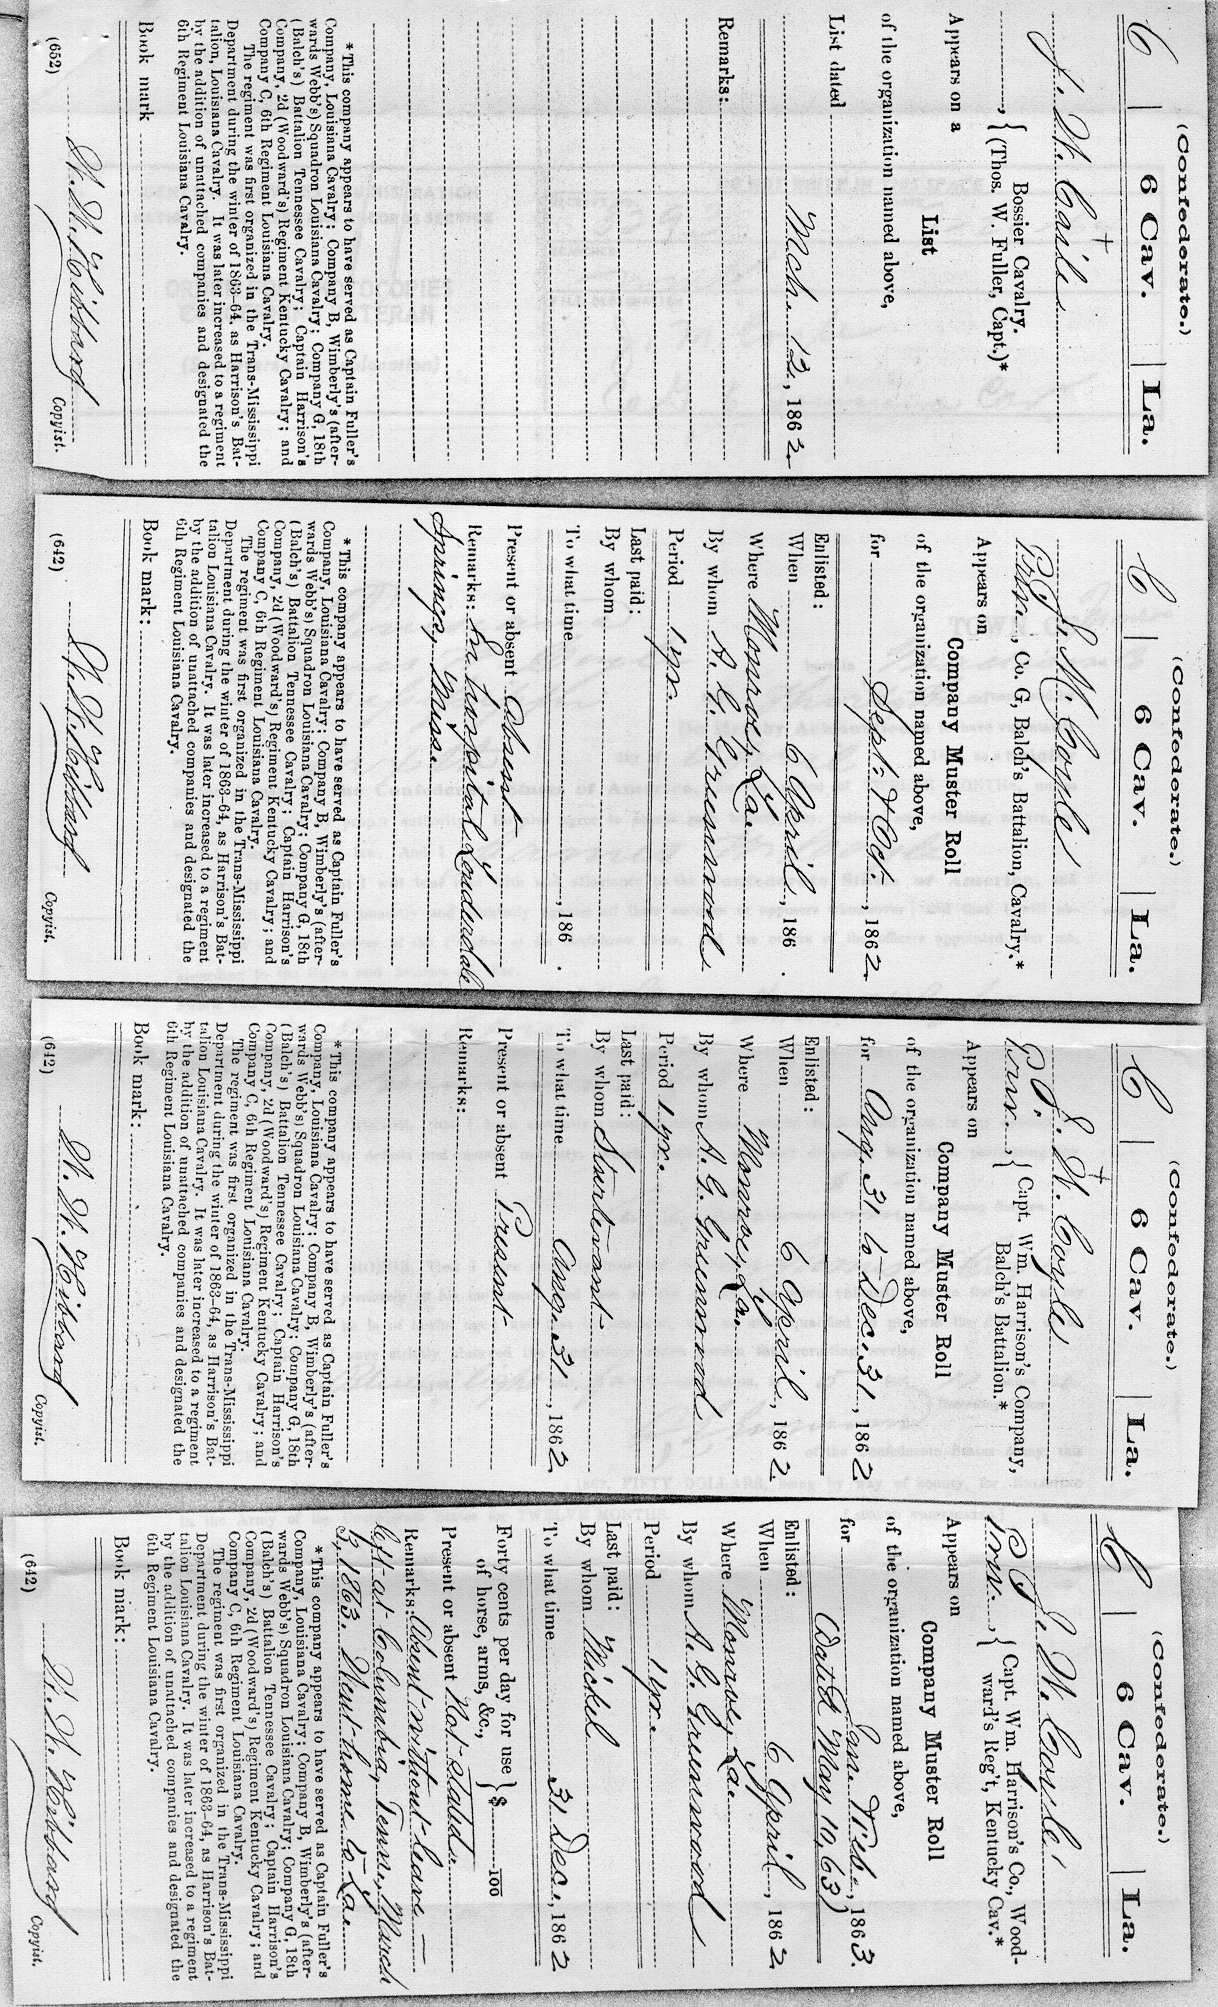 (Confederate.)
C | 6 Cav. | La.
J. W. Caile
Bossier Cavalry.
(Thos. W. Fuller, Capt.)*
Appears on a
List
of the organization named above,
Mch. 12, 1862.
List dated
Remarks:
*This company appears to have served as Captain Fuller's
Company, Louisiana Cavalry; Company B, Wimberly's (after-
wards Webb's) Squadron Louisiana Cavalry; Company G, 18th
(Balch's) Battalion Tennessee Cavalry; Captain Harrison's
Company, 2d (Woodward's) Regiment Kentucky Cavalry; and
Company C, 6th Regiment Louisiana Cavalry.
The regiment was first organized in the Trans-Mississippi
Department during the winter of 1863-64, as Harrison's Bat-
talion, Louisiana Cavalry. It was later increased to a regiment
by the addition of unattached companies and designated the
6th Regiment Louisiana Cavalry.
Book mark
(652)
Copyist.
(Confederate.)
C | 6 Cav. | La.
J. M. Coyle
Co. G, Balch's Battalion, Cavalry.*
Appears on
Company Muster Roll
of the organization named above,
for Sept. & Oct., 1862.
Enlisted:
When 6 April, 186 .
Where Monroe, La.
By whom A. G. Greenwood
Period 1 yr.
Last paid:
By whom
To what time , 186 .
Present or absent Absent
Remarks: In hospital Lauderdale
Springs, Miss.
*This company appears to have served as Captain Fuller's
Company, Louisiana Cavalry; Company B, Wimberly's (after-
wards Webb's) Squadron Louisiana Cavalry; Company G, 18th
(Balch's) Battalion Tennessee Cavalry; Captain Harrison's
Company, 2d (Woodward's) Regiment Kentucky Cavalry; and
Company C, 6th Regiment Louisiana Cavalry.
The regiment was first organized in the Trans-Mississippi
Department during the winter of 1863-64, as Harrison's Bat-
talion Louisiana Cavalry. It was later increased to a regiment
by the addition of unattached companies and designated the
6th Regiment Louisiana Cavalry.
Book mark:
(642)
Copyist.
(Confederate.)
C | 6 Cav. | La.
J. W. Coyle
Capt. Wm. Harrison's Company,
Balch's Battalion.*
Appears on
Company Muster Roll
of the organization named above,
for Aug. 31 to Dec. 31, 1862
Enlisted:
When 6 April, 1862.
Where Monroe, La.
By whom A. G. Greenwood
Period 1 yr.
Last paid:
By whom Sturtevant
To what time Aug. 31, 1862.
Present or absent Present
Remarks:
*This company appears to have served as Captain Fuller's
Company, Louisiana Cavalry; Company B, Wimberly's (after-
wards Webb's) Squadron Louisiana Cavalry; Company G, 18th
(Balch's) Battalion Tennessee Cavalry; Captain Harrison's
Company, 2d (Woodward's) Regiment Kentucky Cavalry; and
Company C, 6th Regiment Louisiana Cavalry.
The regiment was first organized in the Trans-Mississippi
Department during the winter of 1863-64, as Harrison's Bat-
talion Louisiana Cavalry. It was later increased to a regiment
by the addition of unattached companies and designated the
6th Regiment Louisiana Cavalry.
Book mark:
(642)
Copyist.
(Confederate.)
C | 6 Cav. | La.
J. W. Coyle
Capt. Wm. Harrison's Co., Wood-
ward's Reg't, Kentucky Cav.*
Appears on
Company Muster Roll
of the organization named above,
for Jan. & Feb., 1863.
(Dated May 10, 63)
Enlisted:
When 6 April, 1862.
Where Monroe, La.
By whom A. G. Greenwood
Period 1 yr.
Last paid:
By whom Mickel
To what time 31 Dec., 1862
Forty cents per day for use
of horse, arms, &c., } $ 100
Present or absent Not stated.
Remarks: Absent without leave—
left at Columbia, Tenn., March
3, 1863. Went home to La.
*This company appears to have served as Captain Fuller's
Company, Louisiana Cavalry; Company B, Wimberly's (after-
wards Webb's) Squadron Louisiana Cavalry; Company G, 18th
(Balch's) Battalion Tennessee Cavalry; Captain Harrison's
Company, 2d (Woodward's) Regiment Kentucky Cavalry; and
Company C, 6th Regiment Louisiana Cavalry.
The regiment was first organized in the Trans-Mississippi
Department during the winter of 1863-64, as Harrison's Bat-
talion Louisiana Cavalry. It was later increased to a regiment
by the addition of unattached companies and designated the
6th Regiment Louisiana Cavalry.
Book mark:
(642)
Copyist.